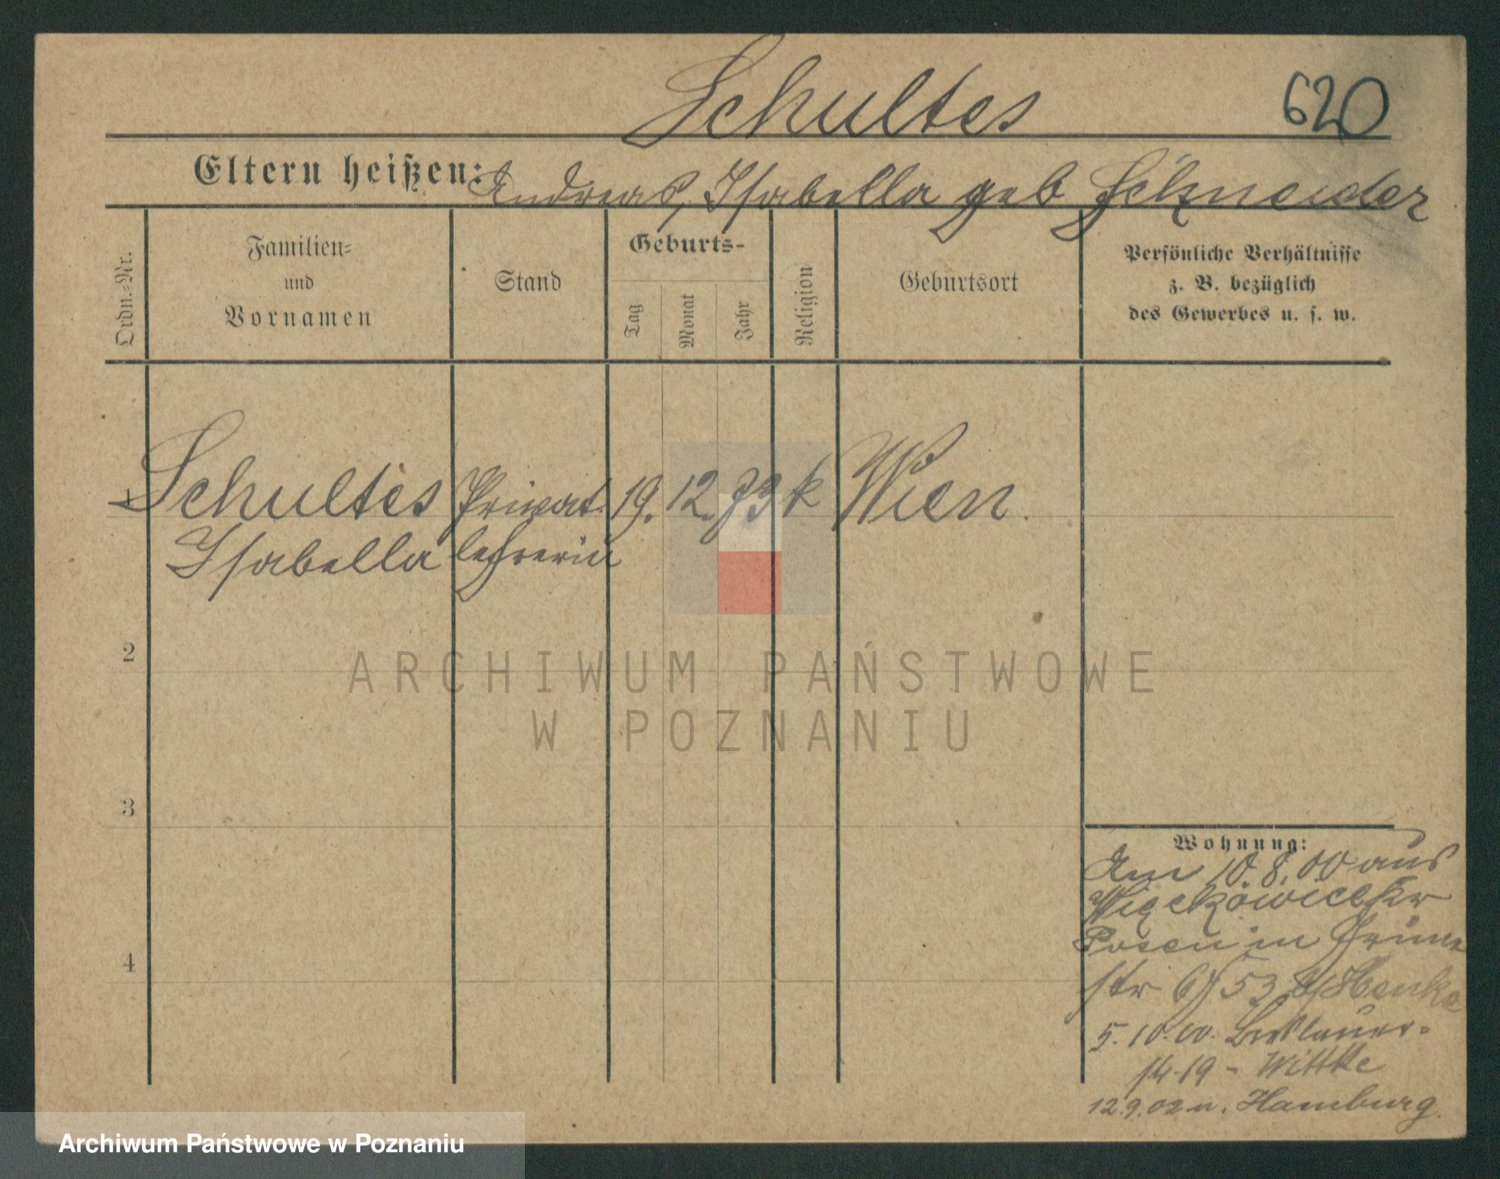 Schultes
620
Eltern heißen: Andreas, Isabella geb Schneider
Ordn.-Nr.
Familien-
und
Vornamen
Stand
Geburts-
Tag
Monat
Jahr
Religion
Geburtsort
Persönliche Verhältnisse
z. B. bezüglich
des Gewerbes u. s. w.
1
Schultes Privat 19. 12. 73 k Wien.
Isabella lehrerin
ARCHIWUM PAŃSTWOWE
W POZNANIU
2
3
4
Wohnung:
Am 10.8.00 aus
Posen in Grüne
str 6 53 Henke
5.10.00. Breslauer-
14.19 - Wittke
12.9.02 n. Hamburg.
Archiwum Państwowe w Poznaniu